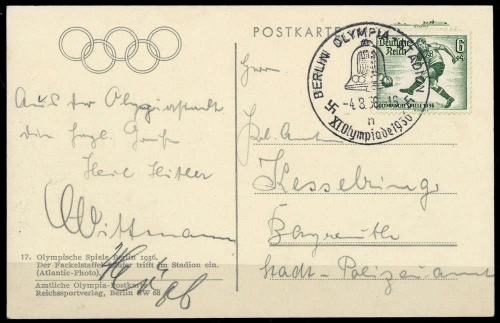 POSTKARTE
BERLIN OLYMPIA-STADION
-4.8.36.
n
XI. Olympiade 1936
Deutsches Reich
6
OLYMPISCHE SPIELE 1936
Aus der Olympiastadt
die
Heil Hitler
Wittmann
17. Olympische Spiele Berlin 1936.
Der Fackelstaffel-Läufer trifft im Stadion ein.
(Atlantic-Photo).
Amtliche Olympia-Postkarte
Reichssportverlag, Berlin SW 68
Herrn
Kesselring
Bayreuth
Stadt-Polizeiamt